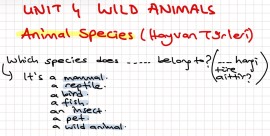 UNIT 4 WILD ANIMALS
Animal Species (Hayvan Türleri)
Which species does ..... belong to? (--- hangi türe aittir?)
↳ It's a mammal.
a reptile.
a bird.
a fish.
an insect.
a pet.
a wild animal.